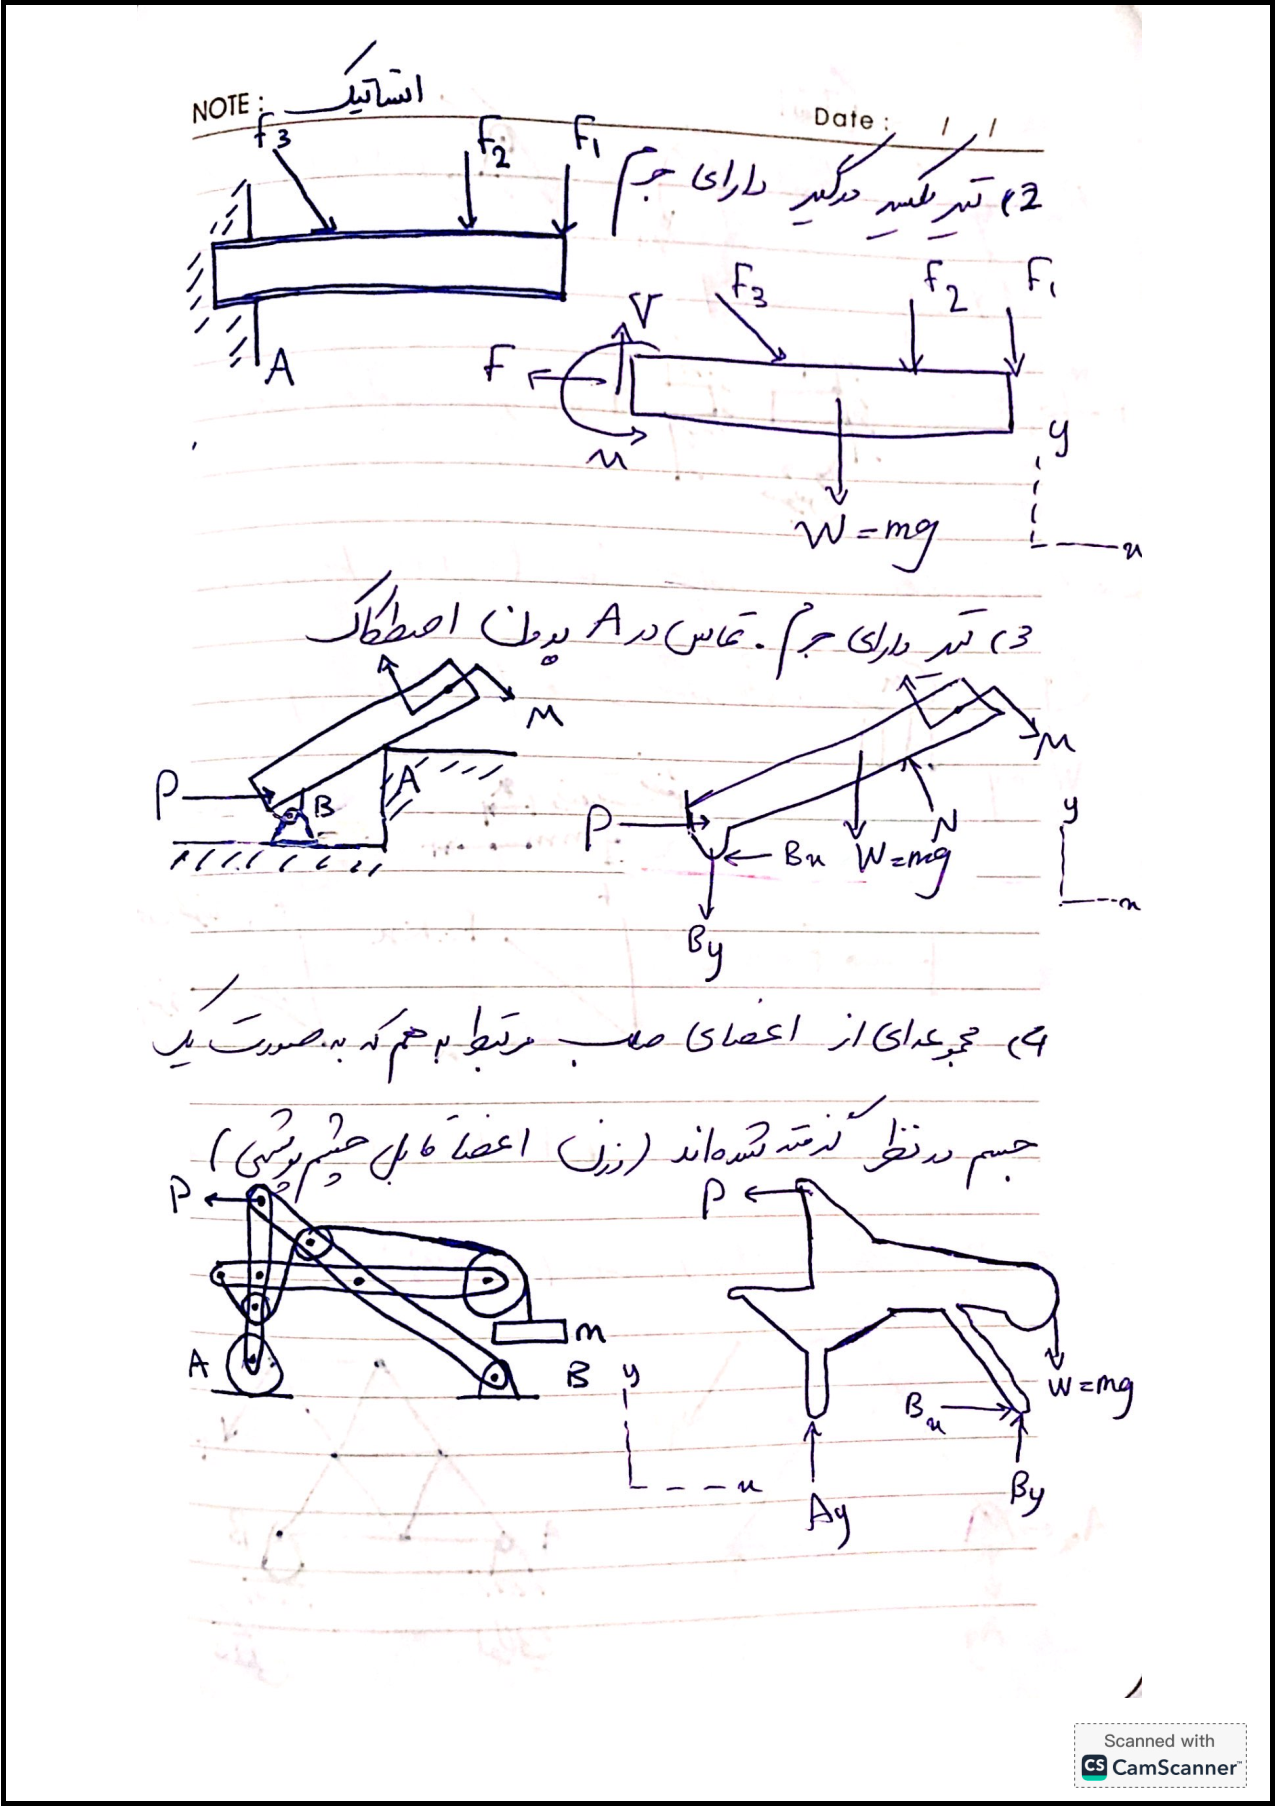 NOTE: استاتیک
Date: / /
2) تیر یکسر درگیر دارای جرم
F3 F2 F1
A
F3 F2 F1
V
F
M
W=mg
y
x
3) تیر دارای جرم. تماس در A بدون اصطکاک
M
P
B
A
M
P
Bx
W=mg
N
By
y
x
4) مجموعه‌ای از اعضای صلب مرتبط به هم که به صورت یک
جسم در نظر گرفته شده‌اند (وزن اعضا قابل چشم پوشی)
P
m
A
B
y
x
P
W=mg
Bx
By
Ay
Scanned with
CS CamScanner